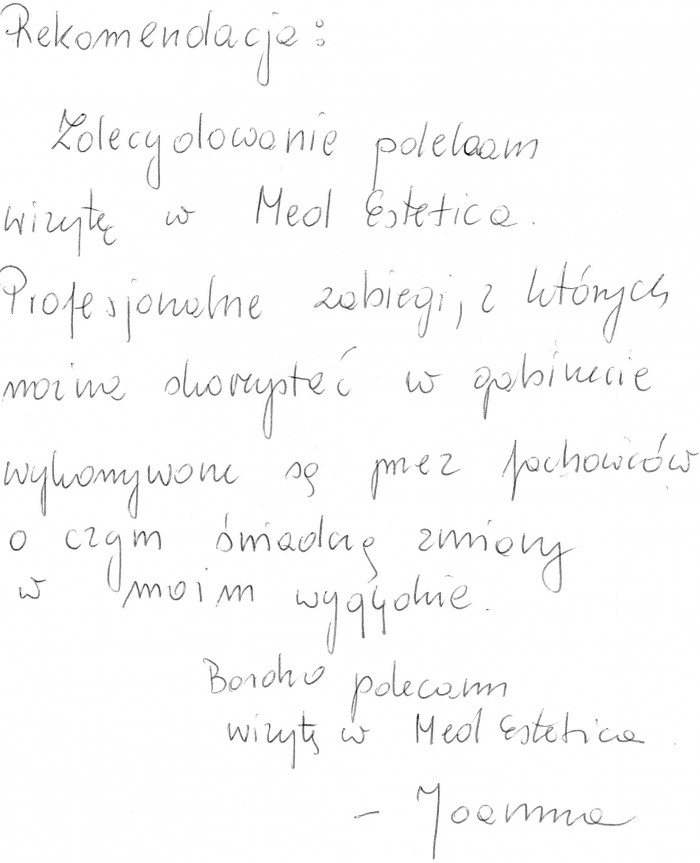 Rekomendacja:
Zdecydowanie polecam
wizytę w Med Estetica.
Profesjonalne zabiegi, z których
można skorzystać w gabinecie
wykonywane są przez fachowców
o czym świadczą zmiany
w moim wyglądzie.
Bardzo polecam
wizytę w Med Estetica
- Joanna